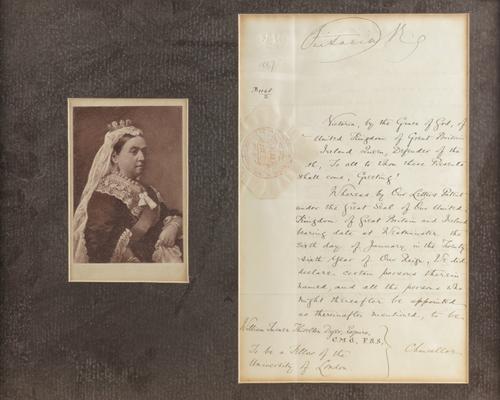 Victoria R
Victoria, by the Grace of God, of
United Kingdom of Great Britain
Ireland Queen, Defender of the
th, To all to whom these Presents
shall come, Greeting!
Whereas by Our Letters Patent
under the Great Seal of Our United
Kingdom of Great Britain and Ireland
bearing date at Westminster the
sixth day of January in the Twenty
sixth Year of Our Reign, We did
declare certain persons therein
named, and all the persons who
might thereafter be appointed
as thereinafter mentioned, to be
William Turner Thiselton Dyer, Esquire,
C.M.G., F.R.S.,
To be a Fellow of the
Chancellor
University of London